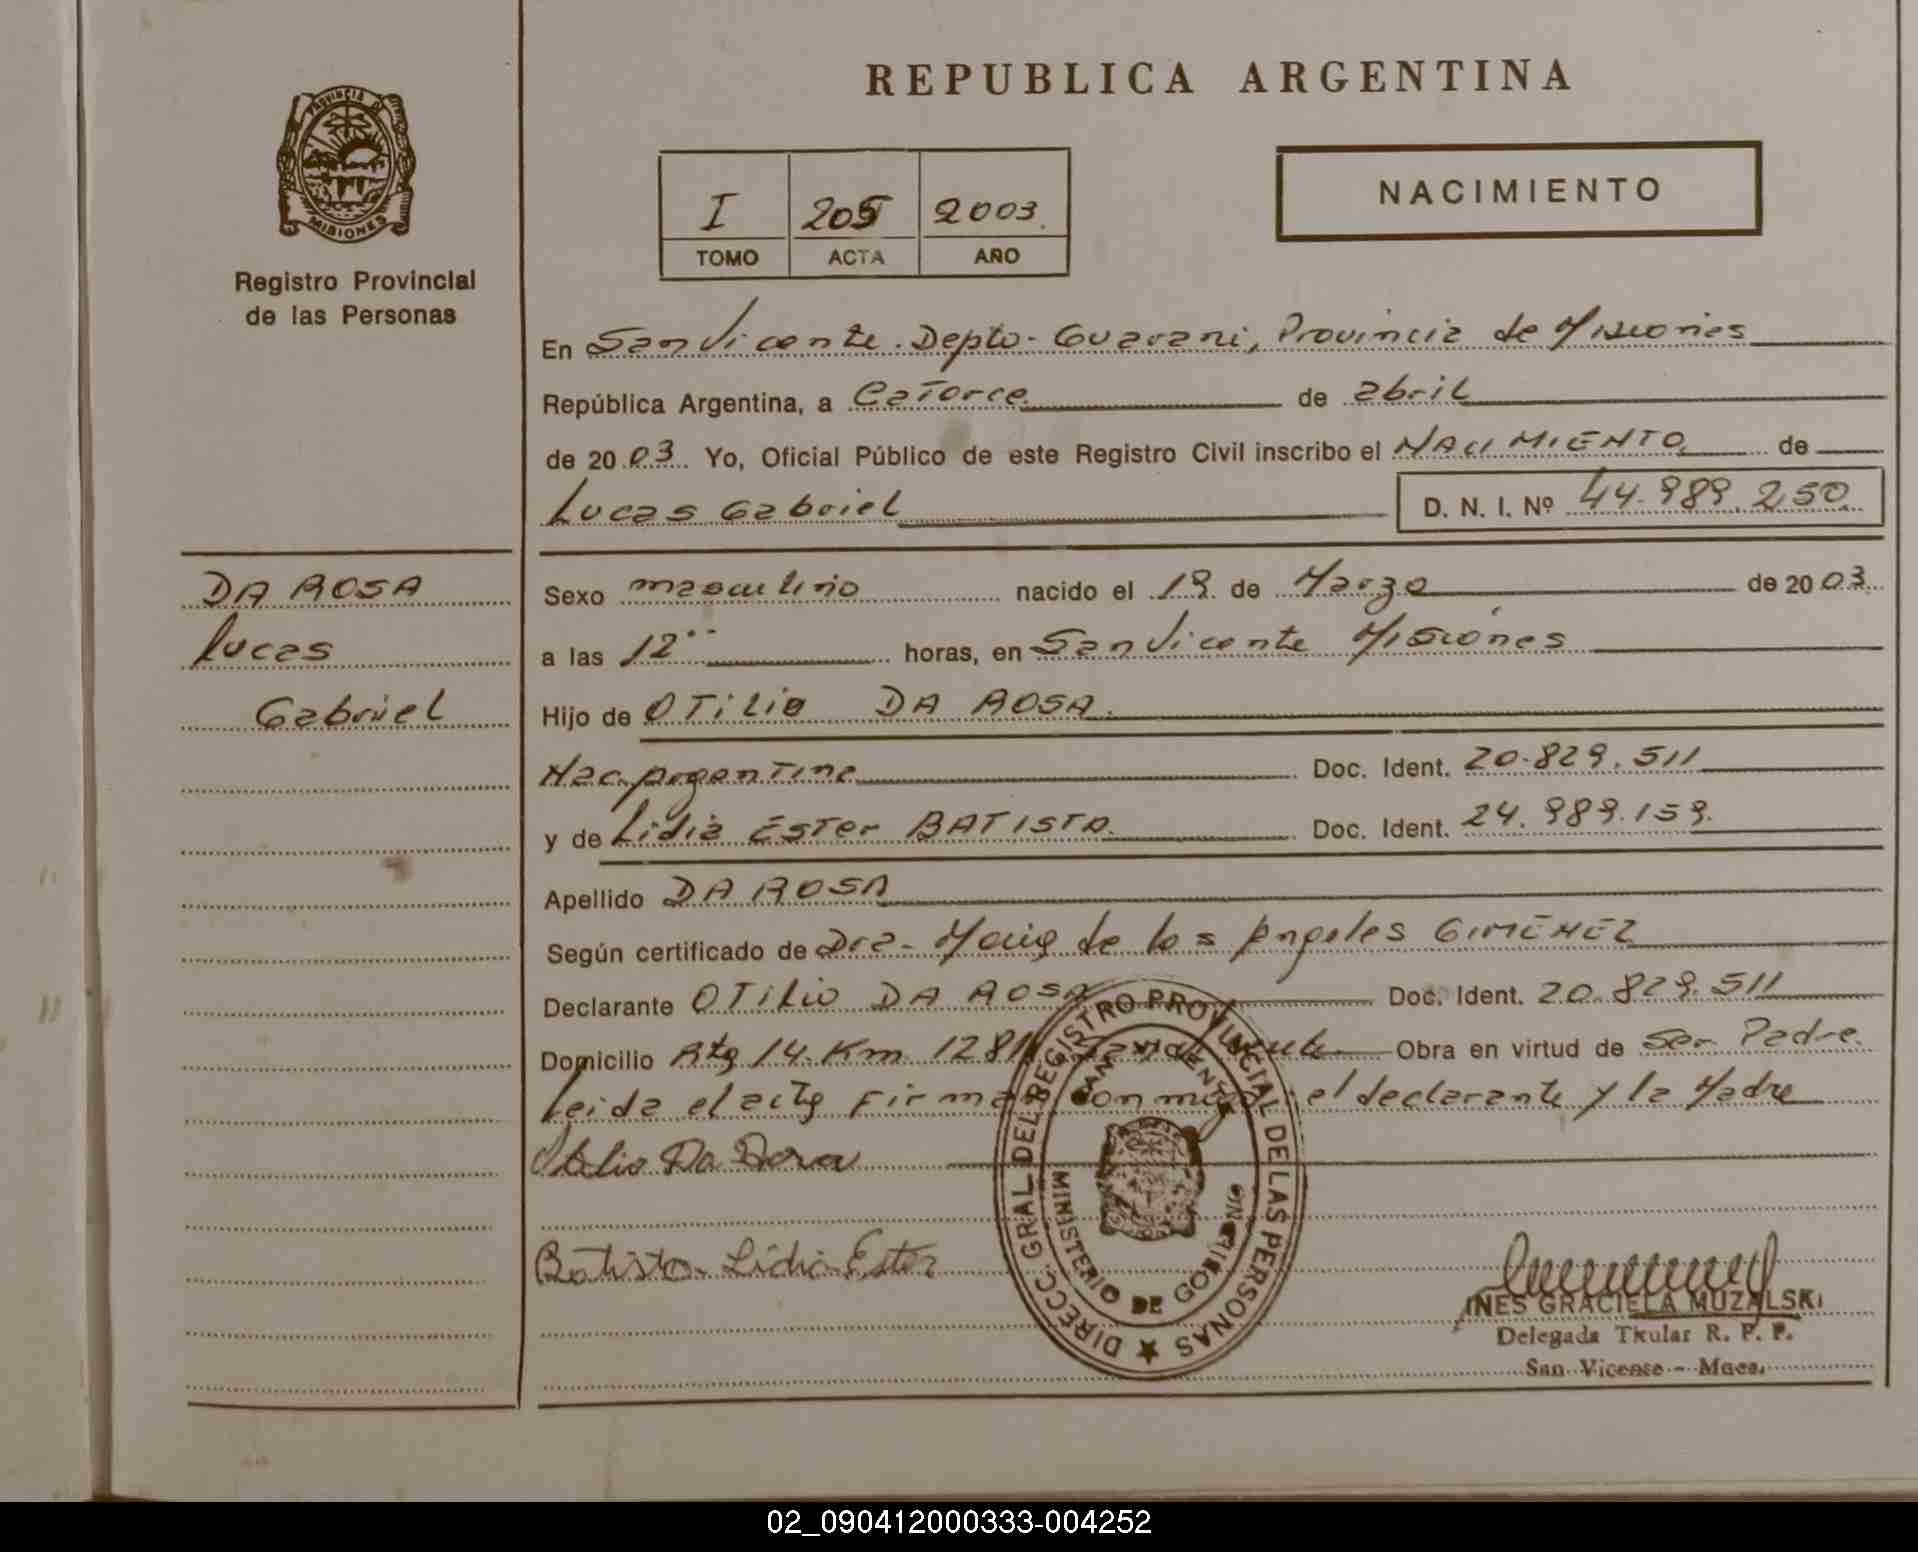 REPUBLICA ARGENTINA
PROVINCIA DE
MISIONES
Registro Provincial
de las Personas
I 205 2003.
TOMO ACTA AÑO
NACIMIENTO
En San Vicente. Depto- Guarani, Provincia de Misiones
República Argentina, a Catorce de abril
de 2003. Yo, Oficial Público de este Registro Civil inscribo el NACIMIENTO de
Lucas Gabriel D. N. I. Nº 44.989.250.
DA ROSA
Lucas
Gabriel
Sexo masculino nacido el 19. de Marzo de 2003.
a las 12 horas, en San Vicente Misiones
Hijo de OTILIO DA ROSA.
Nac. Argentina Doc. Ident. 20.829.511
y de Lidia Ester BATISTA. Doc. Ident. 24.989.159.
Apellido DA ROSA
Según certificado de Dra- Maria de los Angeles GIMENEZ
Declarante OTILIO DA ROSA Doc. Ident. 20.829.511
Domicilio Rta 14. Km 1281 Obra en virtud de Ser Padre.
Leida el acta Firman conmigo el declarante y la Madre
Otilio Da Rosa
Batista Lidia Ester
DIRECC. GRAL DEL REGISTRO PROVINCIAL DE LAS PERSONAS
SAN VICENTE
MINISTERIO DE GOBIERNO
INES GRACIELA MUZALSKI
Delegada Titular R. P. P.
San Vicente - Mnes.
02_090412000333-004252